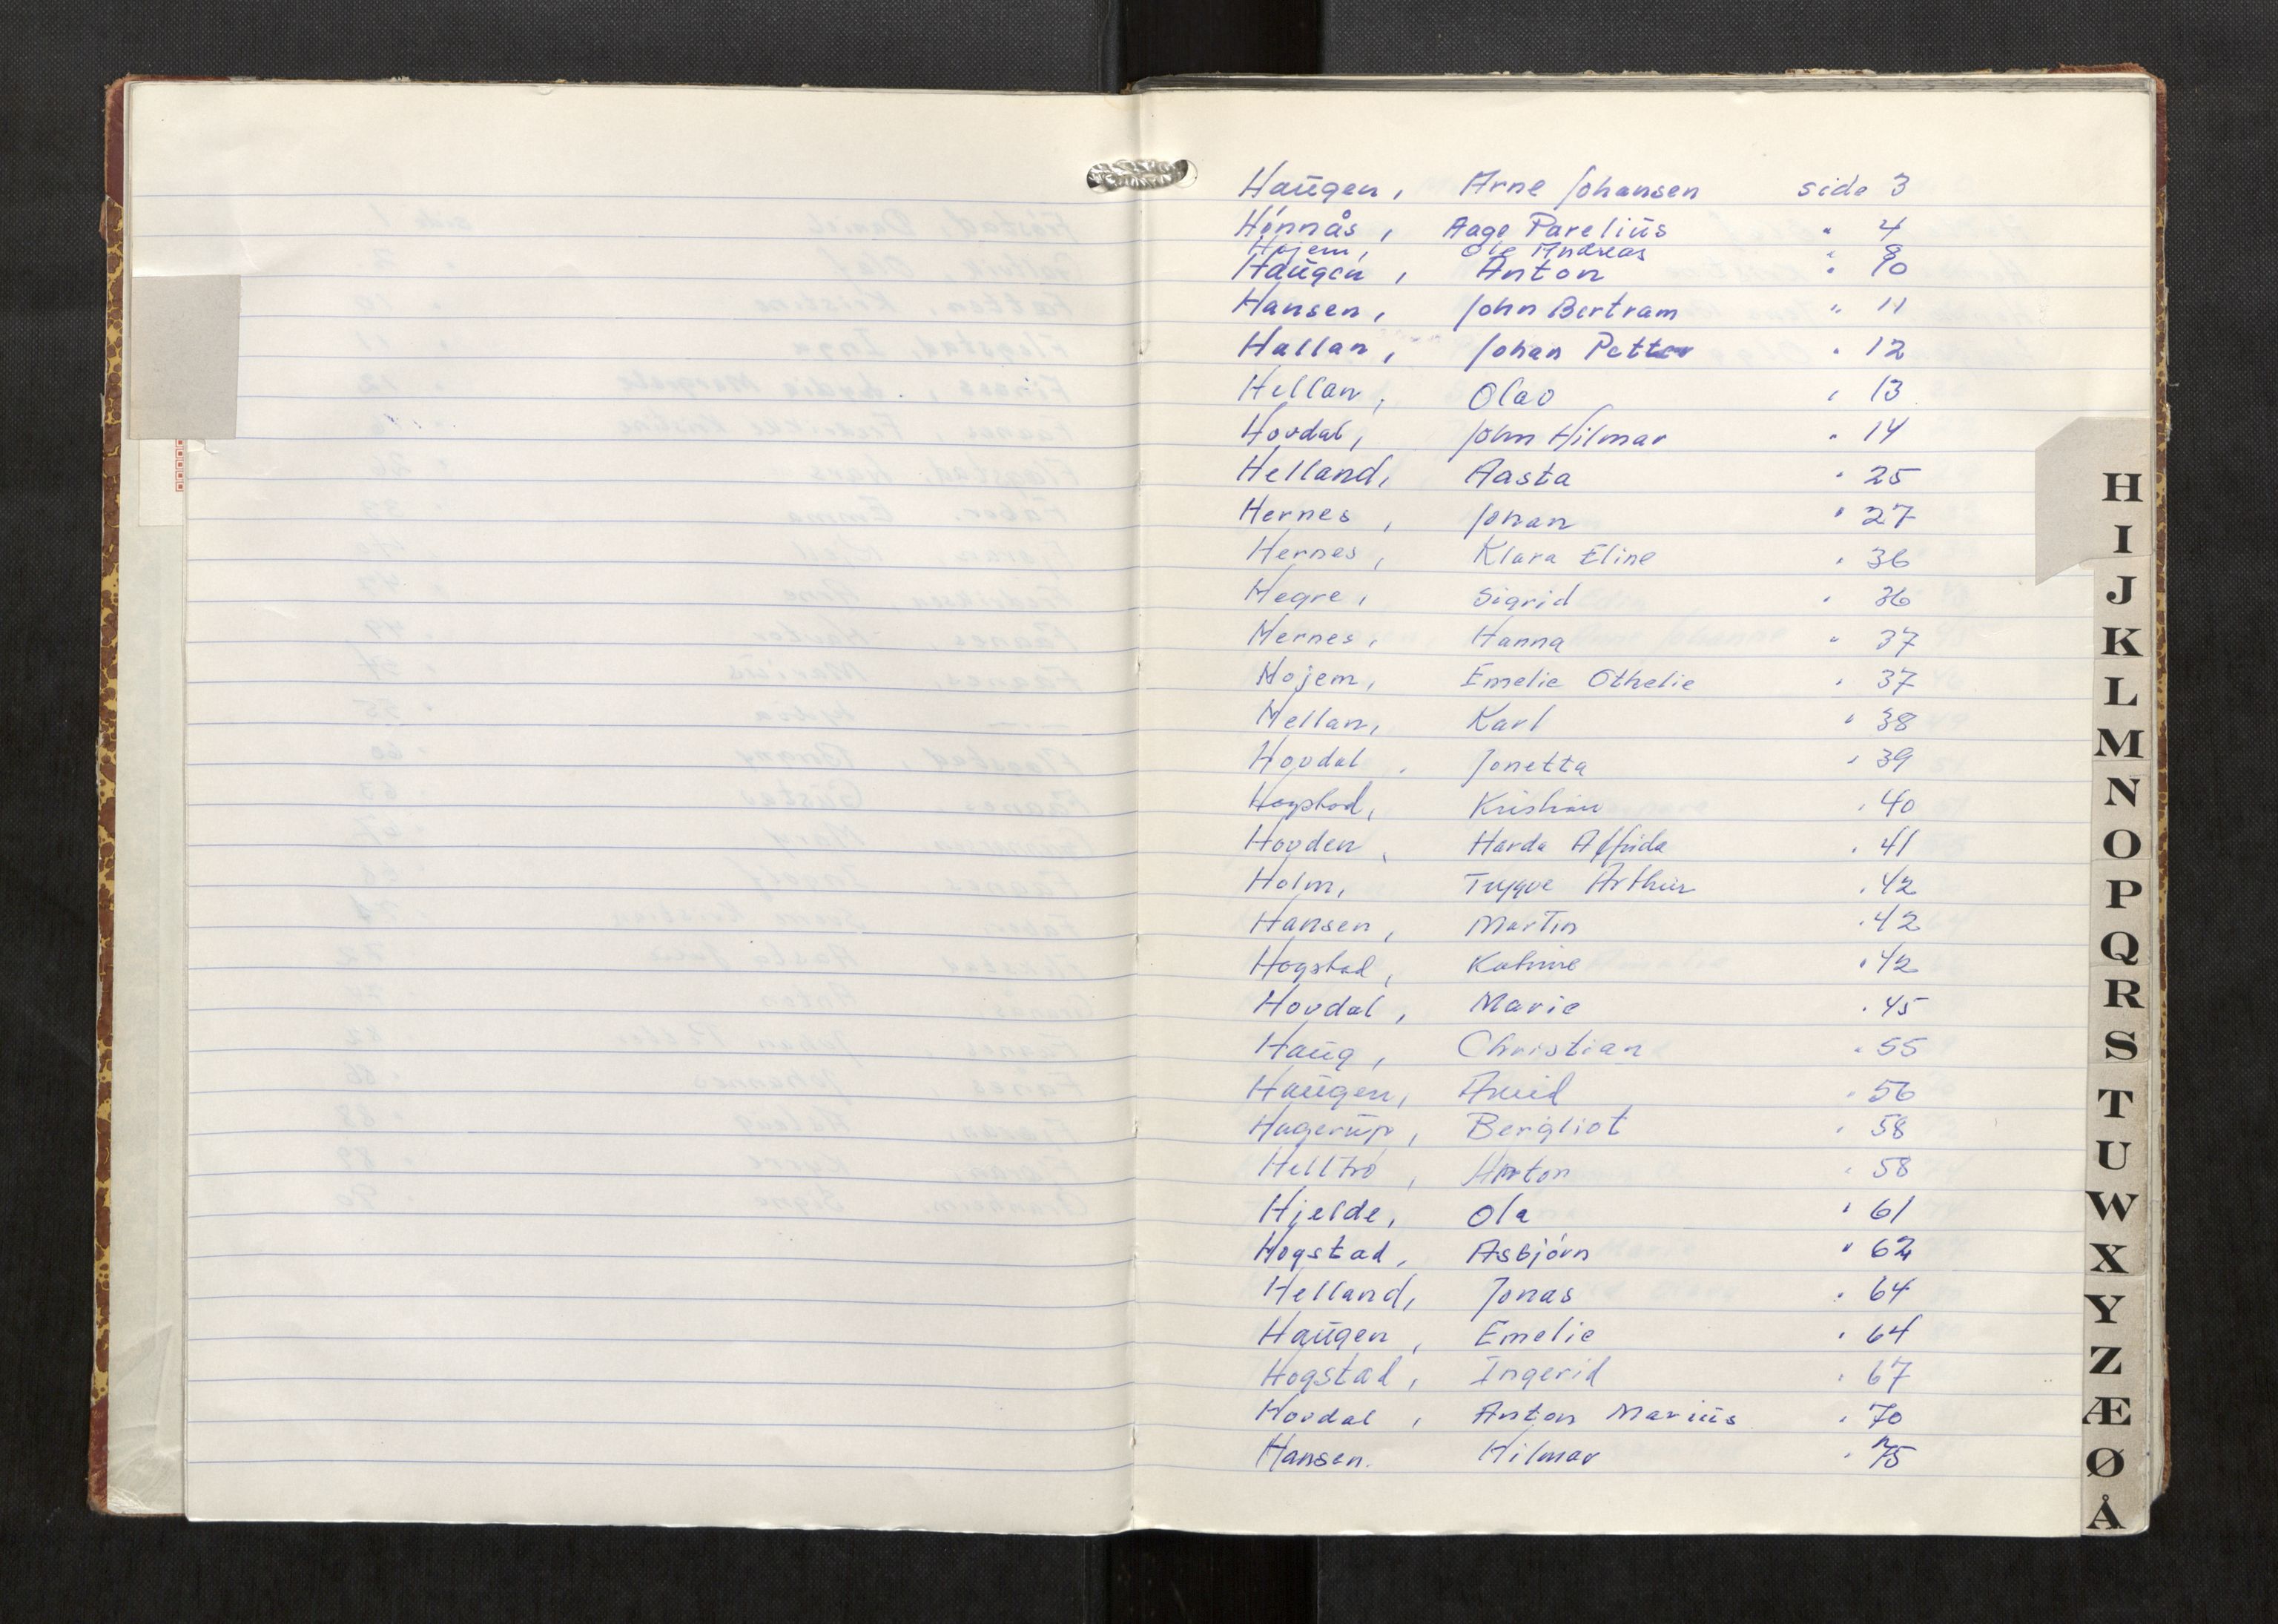 Haugen, Arne Johansen side 3
Hönnås, Aage Parelius " 4
Højem, Ole Andreas " 8
Haugen, Anton " 10
Hansen, John Bertram " 11
Hallan, Johan Petter " 12
Hellan, Olav " 13
Hovdal, John Hilmar " 14
Helland, Aasta " 25
Hernes, Johan " 27
Hernes, Klara Eline " 36
Hegre, Sigrid " 36
Hernes, Hanna " 37
Hojem, Emelie Othelie " 37
Hellan, Karl " 38
Hovdal, Jonetta " 39
Hogstad, Kristian " 40
Hovden, Harda Alfrida " 41
Holm, Trygve Arthur " 42
Hansen, Martin " 42
Hogstad, Katrine " 42
Hovdal, Marie " 45
Haug, Christian " 55
Haugen, Arvid " 56
Hagerup, Bergliot " 58
Helltrø, Anton " 58
Hjelde, Ola " 61
Hogstad, Asbjörn " 62
Helland, Jonas " 64
Haugen, Emelie " 64
Hogstad, Ingerid " 67
Hovdal, Anton Marius " 70
Hansen. Hilmar " 75
H
I
J
K
L
M
N
O
P
Q
R
S
T
U
W
X
Y
Z
Æ
Ø
Å